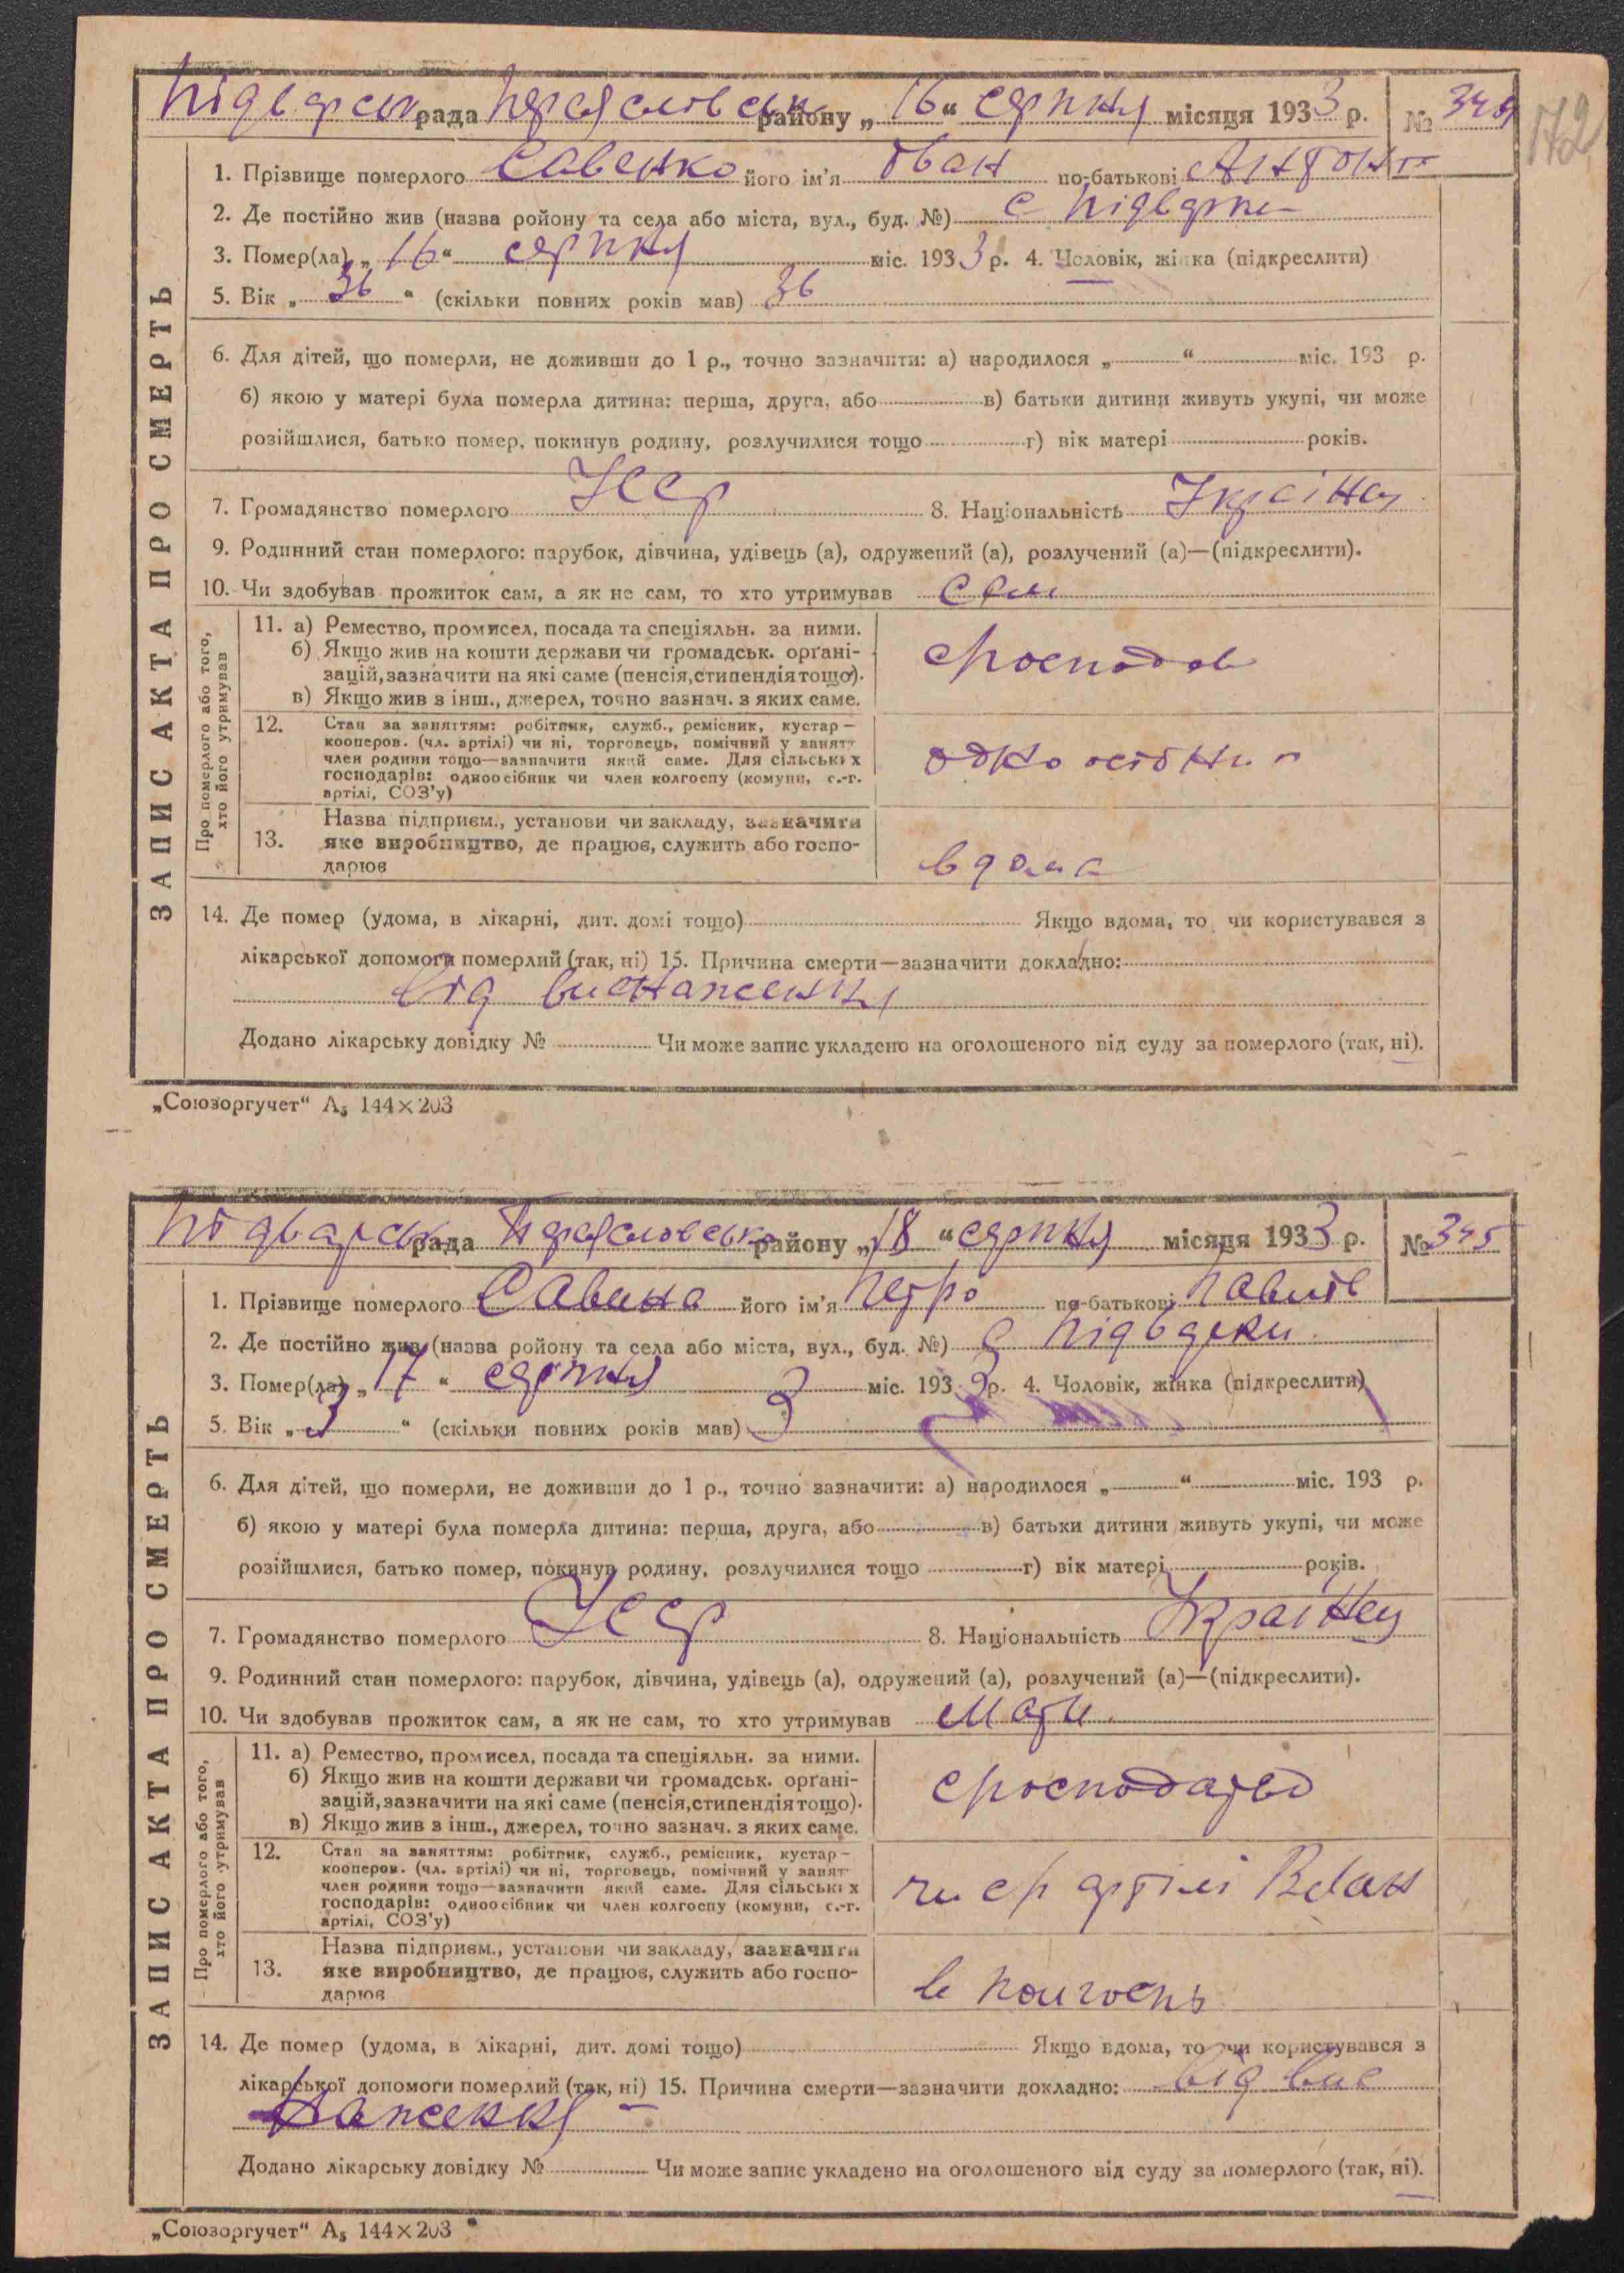 Підварськ рада Переяславськ району „16“ серпня місяця 1933 р. № 344
172
ЗАПИС АКТА ПРО СМЕРТЬ
1. Прізвище померлого Савенко його ім'я Іван по-батькові Антон
2. Де постійно жив (назва ройону та села або міста, вул., буд. №) с Підварки
3. Помер(ла) „16“ серпня міс. 1933 р. 4. Чоловік, жінка (підкреслити)
5. Вік „36“ (скільки повних років мав) 36
6. Для дітей, що померли, не доживши до 1 р., точно зазначити: а) народилося „ “ міс. 193 р.
б) якою у матері була померла дитина: перша, друга, або в) батьки дитини живуть укупі, чи може
розійшлися, батько помер, покинув родину, розлучилися тощо г) вік матері років.
7. Громадянство померлого Усср 8. Національність Українец
9. Родинний стан померлого: парубок, дівчина, удівець (а), одружений (а), розлучений (а)—(підкреслити).
10. Чи здобував прожиток сам, а як не сам, то хто утримував сам
Про померлого або того, хто його утримував
11. а) Ремество, промисел, посада та спеціяльн. за ними.
б) Якщо жив на кошти держави чи громадськ. органі-
зацій, зазначити на які саме (пенсія, стипендія тощо).
в) Якщо жив з інш., джерел, точно зазнач. з яких саме.
12. Стан за заняттям: робітник, служб., ремісник, кустар—
кооперов. (чл. артілі) чи ні, торговець, помічний у занятт
член родини тощо—зазначити який саме. Для сільських
господарів: одноосібник чи член колгоспу (комуни, с.-г.
артілі, СОЗ'у)
одноосібник
Назва підприєм., установи чи закладу, зазначити
13. яке виробництво, де працює, служить або госпо-
дарює
вдома
14. Де помер (удома, в лікарні, дит. домі тощо) Якщо вдома, то чи користувався з
лікарської допомоги померлий (так, ні) 15. Причина смерти—зазначити докладно:
від виснаження
Додано лікарську довідку № Чи може запис укладено на оголошеного від суду за померлого (так, ні).
„Союзоргучет“ А₅ 144×203
Підварськ рада Переяславсько району „18“ серпня місяця 1933 р. № 345
ЗАПИС АКТА ПРО СМЕРТЬ
1. Прізвище померлого Савина його ім'я Петро по-батькові Павлов
2. Де постійно жив (назва ройону та села або міста, вул., буд. №) с Підварки
3. Помер(ла) „17“ серпня міс. 1933 р. 4. Чоловік, жінка (підкреслити)
5. Вік „3“ (скільки повних років мав) 3
6. Для дітей, що померли, не доживши до 1 р., точно зазначити: а) народилося „ “ міс. 193 р.
б) якою у матері була померла дитина: перша, друга, або в) батьки дитини живуть укупі, чи може
розійшлися, батько помер, покинув родину, розлучилися тощо г) вік матері років.
7. Громадянство померлого Усср 8. Національність Українец
9. Родинний стан померлого: парубок, дівчина, удівець (а), одружений (а), розлучений (а)—(підкреслити).
10. Чи здобував прожиток сам, а як не сам, то хто утримував Мати
Про померлого або того, хто його утримував
11. а) Ремество, промисел, посада та спеціяльн. за ними.
б) Якщо жив на кошти держави чи громадськ. органі-
зацій, зазначити на які саме (пенсія, стипендія тощо).
в) Якщо жив з інш., джерел, точно зазнач. з яких саме.
12. Стан за заняттям: робітник, служб., ремісник, кустар—
кооперов. (чл. артілі) чи ні, торговець, помічний у занят
член родини тощо—зазначити який саме. Для сільських
господарів: одноосібник чи член колгоспу (комуни, с.-г.
артілі, СОЗ'у)
артілі
Назва підприєм., установи чи закладу, зазначити
13. яке виробництво, де працює, служить або госпо-
дарює
в колгоспь
14. Де помер (удома, в лікарні, дит. домі тощо) Якщо вдома, то чи користувався з
лікарської допомоги померлий (так, ні) 15. Причина смерти—зазначити докладно: від вис
наження
Додано лікарську довідку № Чи може запис укладено на оголошеного від суду за померлого (так, ні).
„Союзоргучет“ А₅ 144×203